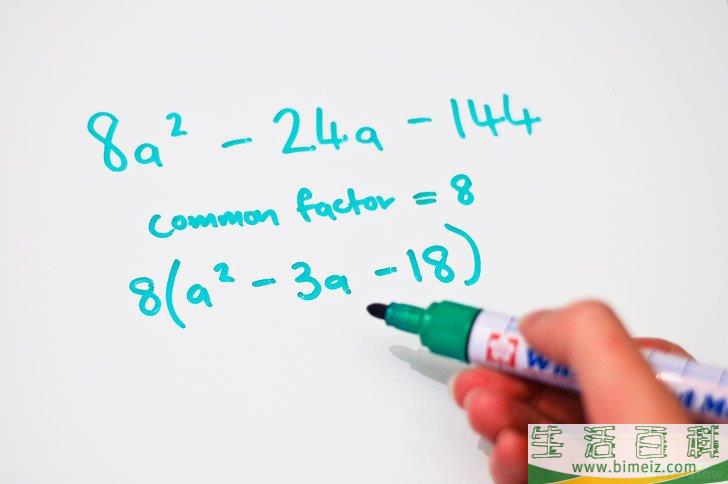 8a² - 24a - 144
common factor = 8
8(a² - 3a - 18)
生活百科
www.bimeiz.com